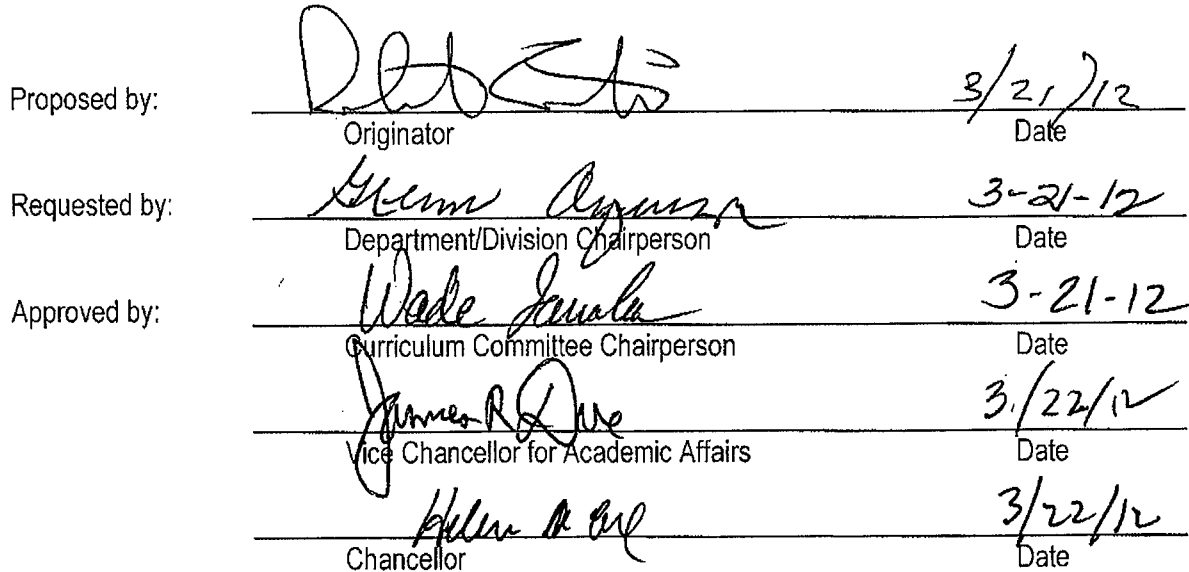 Proposed by: 3/21/12
Originator Date
Requested by: Glenn 3-21-12
Department/Division Chairperson Date
Approved by: Wade 3-21-12
Curriculum Committee Chairperson Date
James R Dire 3/22/12
Vice Chancellor for Academic Affairs Date
Helen A 3/22/12
Chancellor Date